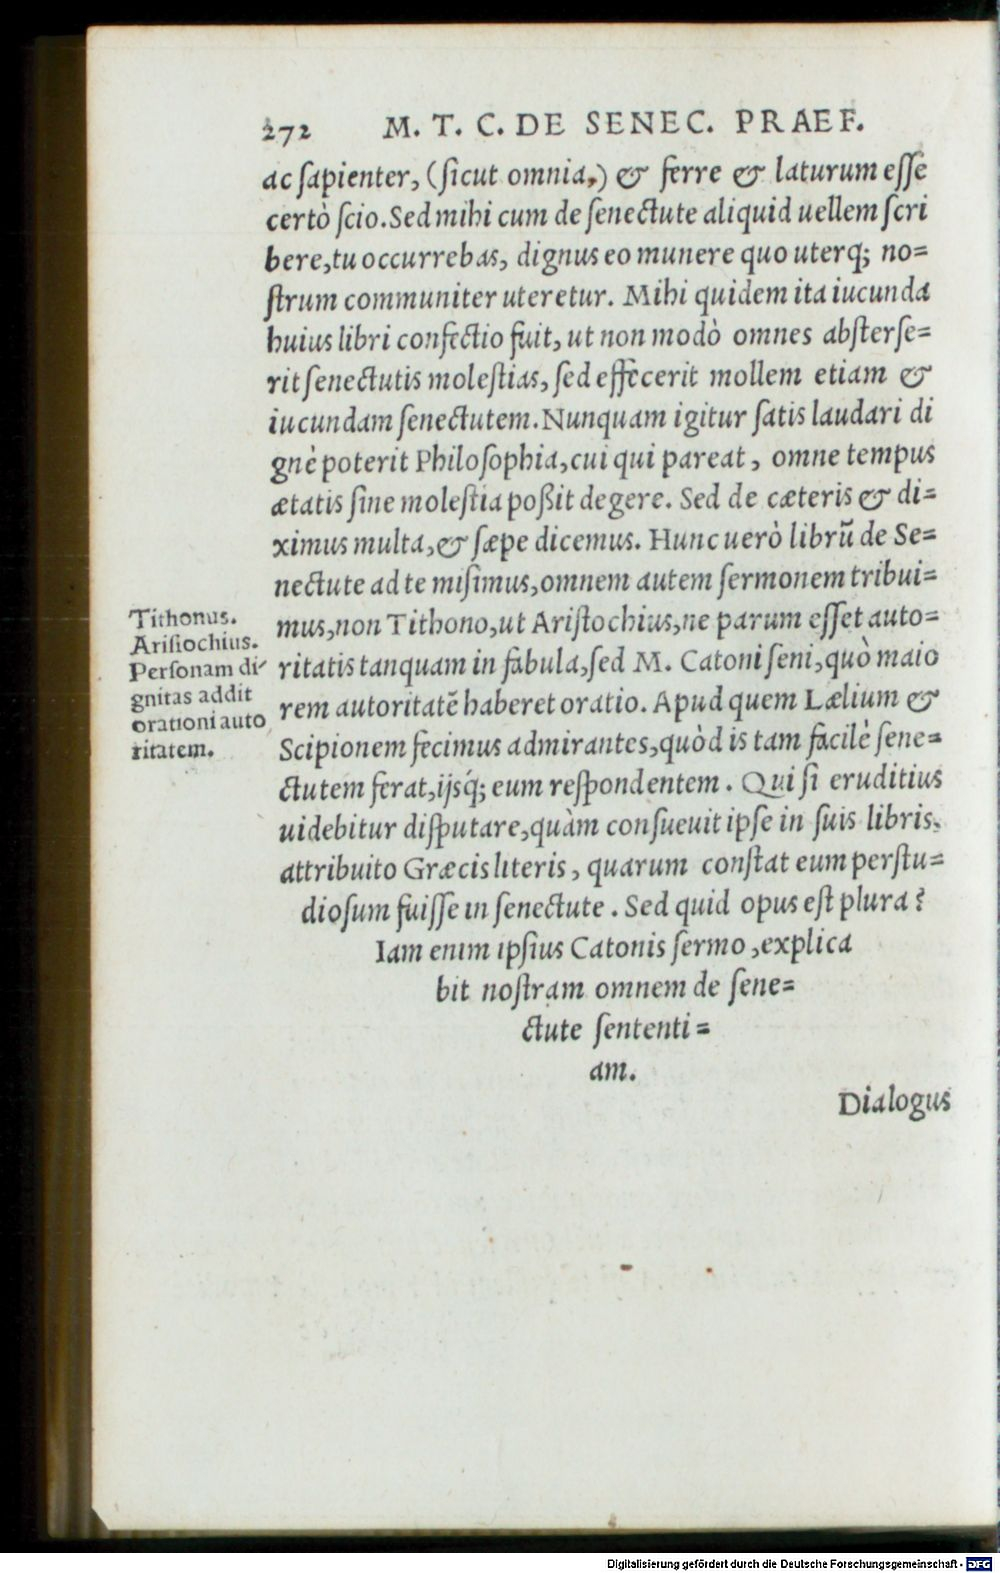 272 M. T. C. DE SENEC. PRAEF.
ac ſapienter, (ſicut omnia,) & ferre & laturum eſſe
certò ſcio. Sed mihi cum de ſenectute aliquid uellem ſcri
bere, tu occurrebas, dignus eo munere quo uterq; no=
ſtrum communiter uteretur. Mihi quidem ita iucunda
huius libri confectio fuit, ut non modò omnes abſterſe=
rit ſenectutis moleſtias, ſed effecerit mollem etiam &
iucundam ſenectutem. Nunquam igitur ſatis laudari di
gnè poterit Philoſophia, cui qui pareat, omne tempus
ætatis ſine moleſtia poßit degere. Sed de cæteris & di=
ximus multa, & ſæpe dicemus. Hunc uerò librū de Se=
nectute ad te miſimus, omnem autem ſermonem tribui=
mus, non Tithono, ut Ariſtochius, ne parum eſſet auto=
ritatis tanquam in fabula, ſed M. Catoni ſeni, quò maio
rem autoritatē haberet oratio. Apud quem Lælium &
Scipionem fecimus admirantes, quòd is tam facilè ſene=
ctutem ferat, ijsq́; eum reſpondentem. Qui ſi eruditius
uidebitur diſputare, quàm conſueuit ipſe in ſuis libris,
attribuito Græcis literis, quarum conſtat eum perſtu=
dioſum fuiſſe in ſenectute. Sed quid opus eſt plura?
Iam enim ipſius Catonis ſermo, explica
bit noſtram omnem de ſene=
ctute ſententi=
am.
Tithonus.
Ariſtochius.
Perſonam di-
gnitas addit
orationi auto
ritatem.
Dialogus
Digitalisierung gefördert durch die Deutsche Forschungsgemeinschaft - DFG